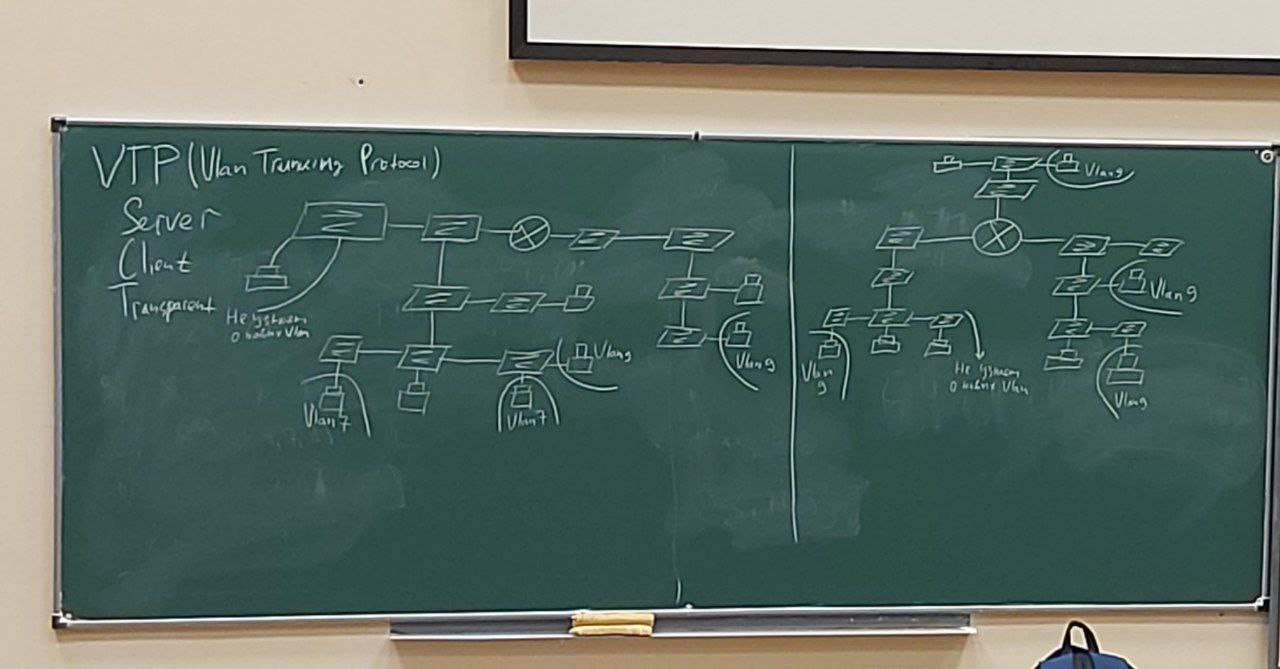 VTP (Vlan Trunking Protocol)
Server
Client
Transparent
Не узнает
о новых Vlan
Vlan 7
Vlan 7
Vlan 9
Vlan 9
Vlan 9
Vlan 9
Vlan
9
Не узнает
о новых Vlan
Vlan 9